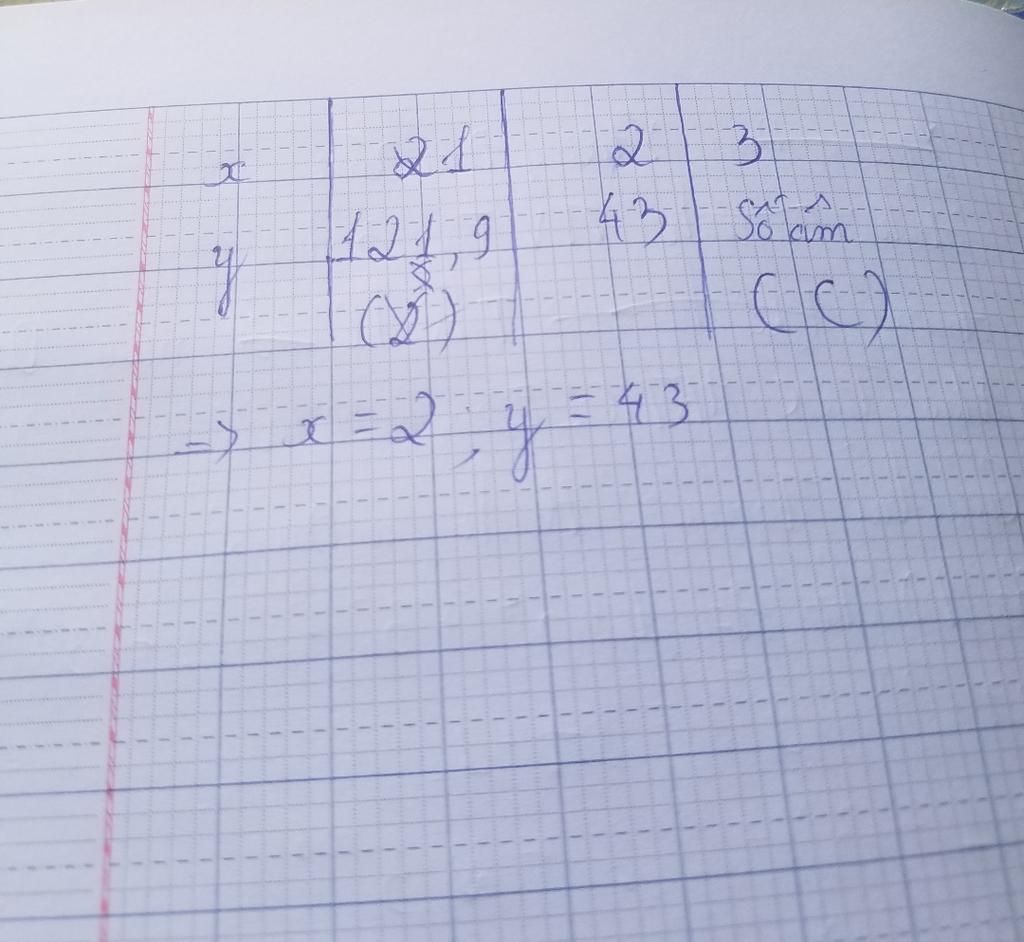 x 1 2 3
y 121,9 43 Số âm
( ) (C)
=> x = 2, y = 43